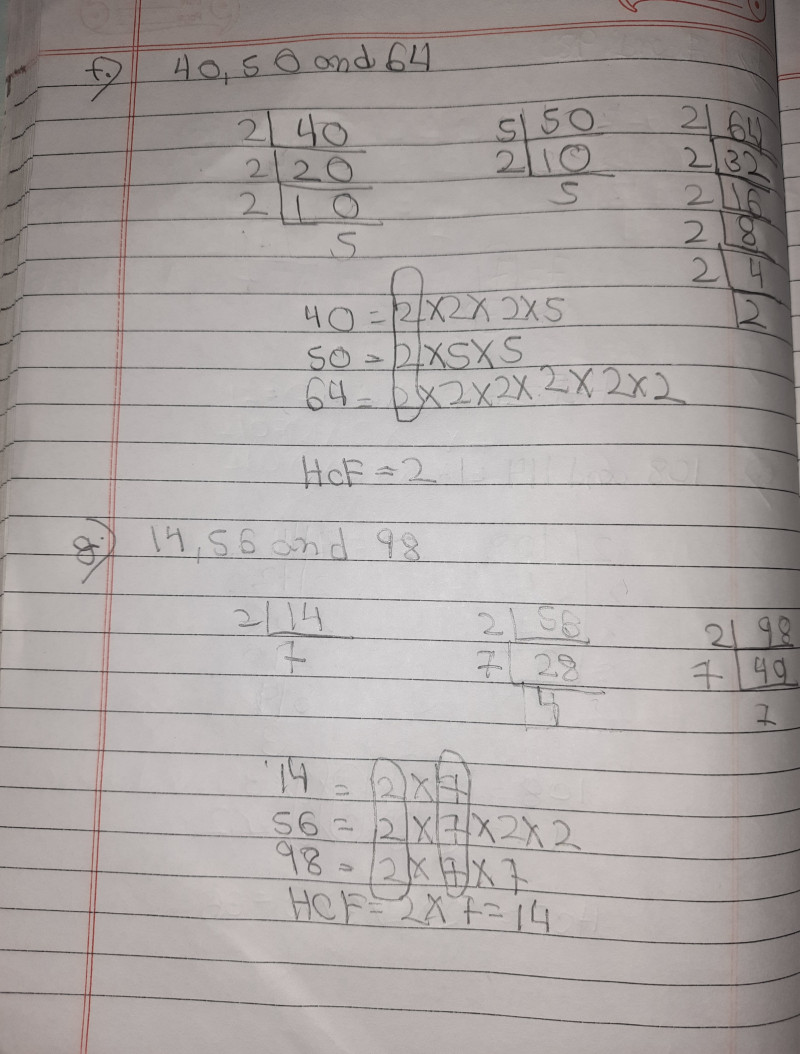 f.) 40, 50 and 64
2 40 5 50 2 64
2 20 2 10 2 32
2 10 5 2 16
5 2 8
2 4
2
40 = 2 x 2 x 2 x 5
50 = 2 x 5 x 5
64 = 2 x 2 x 2 x 2 x 2 x 2
HCF = 2
g.) 14, 56 and 98
2 14 2 56 2 98
7 7 28 7 49
4 7
14 = 2 x 7
56 = 2 x 7 x 2 x 2
98 = 2 x 7 x 7
HCF = 2 x 7 = 14